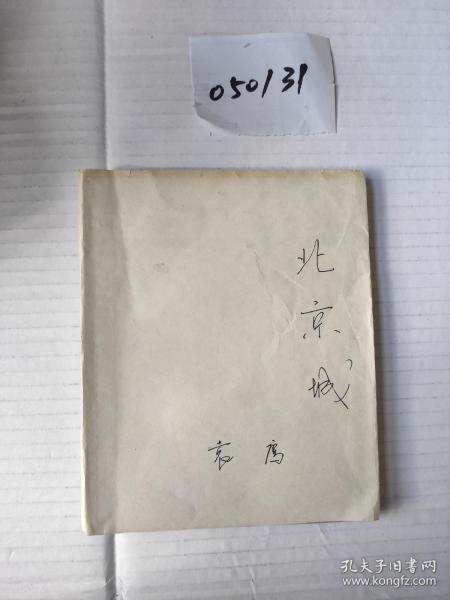 050131
北京城
袁鹰
孔夫子旧书网
www.kongfz.com